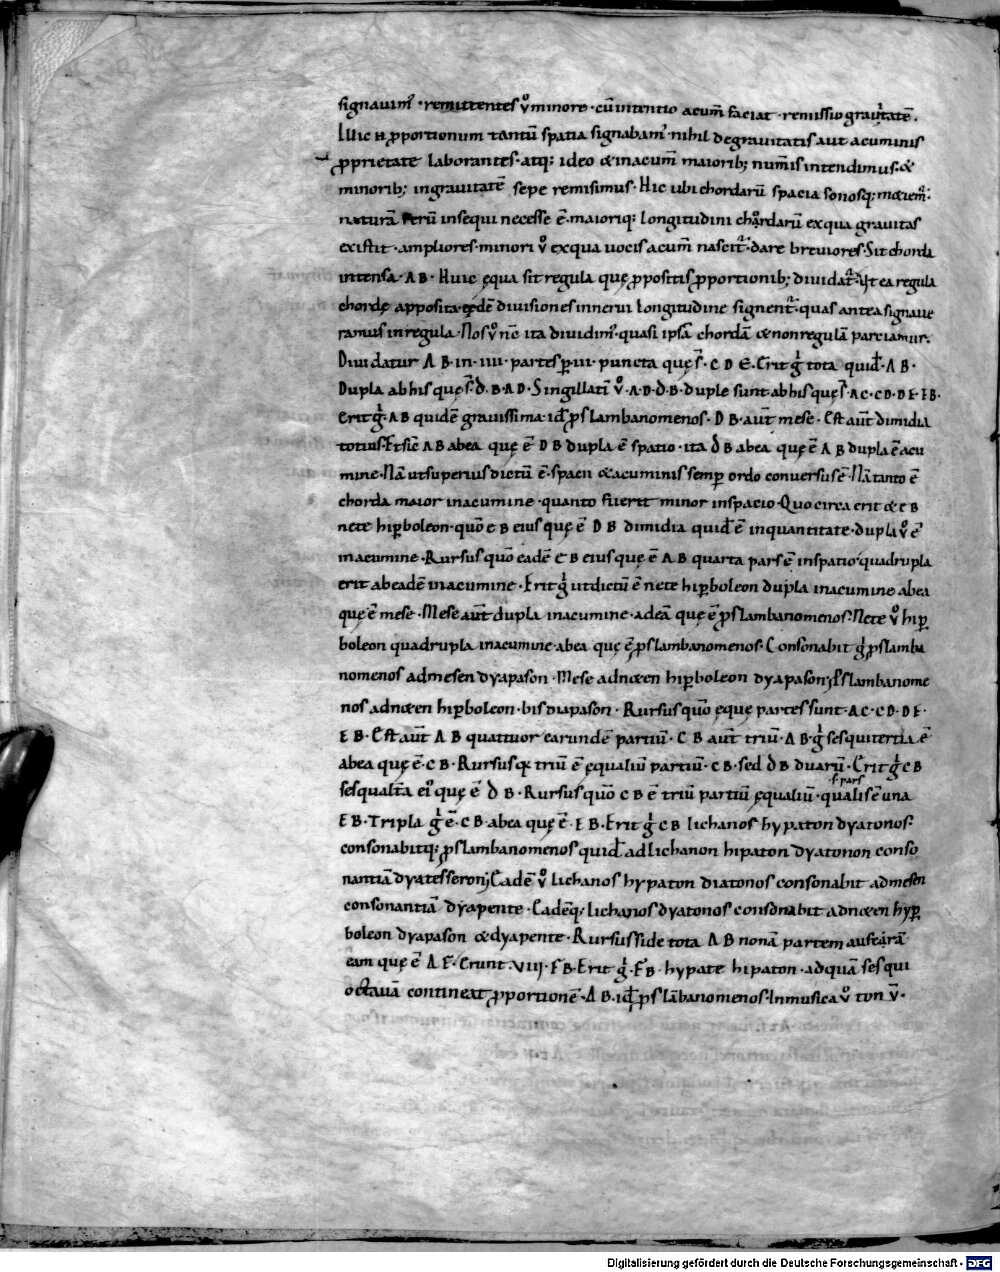 signauim᷒ · remittentes u᷒ minore · cū intentio acum̄ faciat · remissio grauitatē .
Illic n̄ ꝓportionum tantū spatia signabam᷒ · nihil de grauitatis aut acuminis
ꝓprietate laborantes · atq; ideo & in acum̄ maiorib; num̄is intendimus · &
minorib; in grauitatē sepe remisimus · Hic ubi chordarū spacia sonosq;
naturā rerū insequi necesse ē · maioriq; longitudini chordarū ex qua grauitas
existit · ampliores · minori u᷒ ex qua uocis acum̄ nascit᷒ · dare breuiores · Sit chorda
intensa · AB · Huic ęqua sit regula quę ꝓpositis ꝓportionib; diuidat᷒ · ut ea regula
chordę apposita · ędē diuisiones in nerui longitudine signent᷒ · quas antea signaue
ramus in regula · Nos u᷒ nc̄ ita diuidim᷒ · quasi ipsā chordā & non regulā partiamur ·
Diuidatur AB · in · iiii · partes ꝑ · iii · puncta quę s̄ · C D E · Erit g̊ tota quid̄ · AB ·
Dupla ab his quę s̄ · D · B · AD · Singillatī u᷒ · A · D · D · B · duple sunt ab his quę s̄ · AC · CD · DE · EB ·
Erit g̊ · AB quidē grauissima · id ꝓslambanomenos · DB · aut̄ mese · Est aut̄ dimidia
totius · Et sic̄ AB ab ea quę ē DB dupla ē spatio · ita DB ab ea quę ē AB dupla ē acu
mine · Nā ut superius dictū ē · spacii & acuminis semꝑ ordo conuersus ē · Nā tanto ē
chorda maior in acumine · quanto fuerit minor in spacio · Quocirca erit & EB
nete hiꝑboleon · quō EB eius quę ē DB dimidia quid̄ ē in quantitate · dupla u᷒ ē
in acumine · Rursus quō eadē EB eius quę ē AB quarta pars ē in spatio · quadrupla
erit ab eadē in acumine · Erit g̊ ut dictū ē nete hiꝑboleon dupla in acumine ab ea
quę ē mese · Mese aut̄ dupla in acumine · ad eā quę ē ꝓslambanomenos · Nete u᷒ hiꝑ
boleon quadrupla in acumine ab ea quę ē ꝓslambanomenos · Consonabit g̊ ꝓslamba
nomenos ad mesen dyapason · Mese ad n&en hiꝑboleon dyapason; ꝓslambanome
nos ad n&en hiꝑboleon · bis diapason · Rursus quō ęquę partes sunt · AC · CD · DE ·
EB · Est aut̄ AB quattuor earundē partiū · CB aut̄ triū · AB · g̊ sesquitertia ē
ab ea quę ē · CB · Rursus q; triū ē ęqualiū partiū · CB · sed DB duarū · Erit g̊ CB
sesqualt̄a ei᷒ quę ē DB · Rursus quō CB ē triū partiū ęqualiū · qualis ē una
s · pars
EB · Tripla g̊ ē · CB · ab ea quę ē · EB · Erit g̊ CB lichanos hypaton dyatonos ·
consonabitq; ꝓslambanomenos quid̄ ad lichanon hipaton dyatonon conso
nantiā dyatesseron; Eadē u᷒ lichanos hypaton diatonos consonabit ad mesen
consonantiā dyapente · Eadēq; lichanos dyatonos consonabit ad n&en hyꝑ
boleon dyapason & dyapente · Rursus si de tota AB nonā partem auferā
eam quę ē AF · Erunt · VIII · FB · Erit g̊ · FB · hypate hipaton · ad quā sesqui
octauā contineat ꝓportionē · AB · id ꝓslābanomenos · In musica u᷒ ton
Digitalisierung gefördert durch die Deutsche Forschungsgemeinschaft - DFG